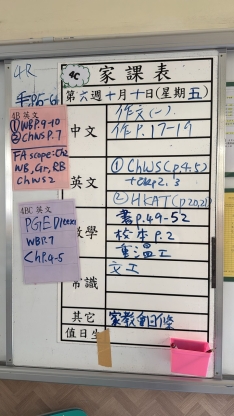 4R
4C
家課表
第六週十月十日(星期五)
4B 英文
①WB P.9-10
②ChWS P.7
FA scope: Ch2
WB, Gr, RB
ChWS 2
4BC 英文
PGE Dictation
WB P.7
Ch P.4-5
中文
作文(一)
作 P.17-19
英文
①ChWS (p.4,5)
+Chap 2.3
②HKAT (p.20,21)
數學
書 p.49-52
校本 p.2
重溫工
常識
交工
其它
家教會回條
值日生